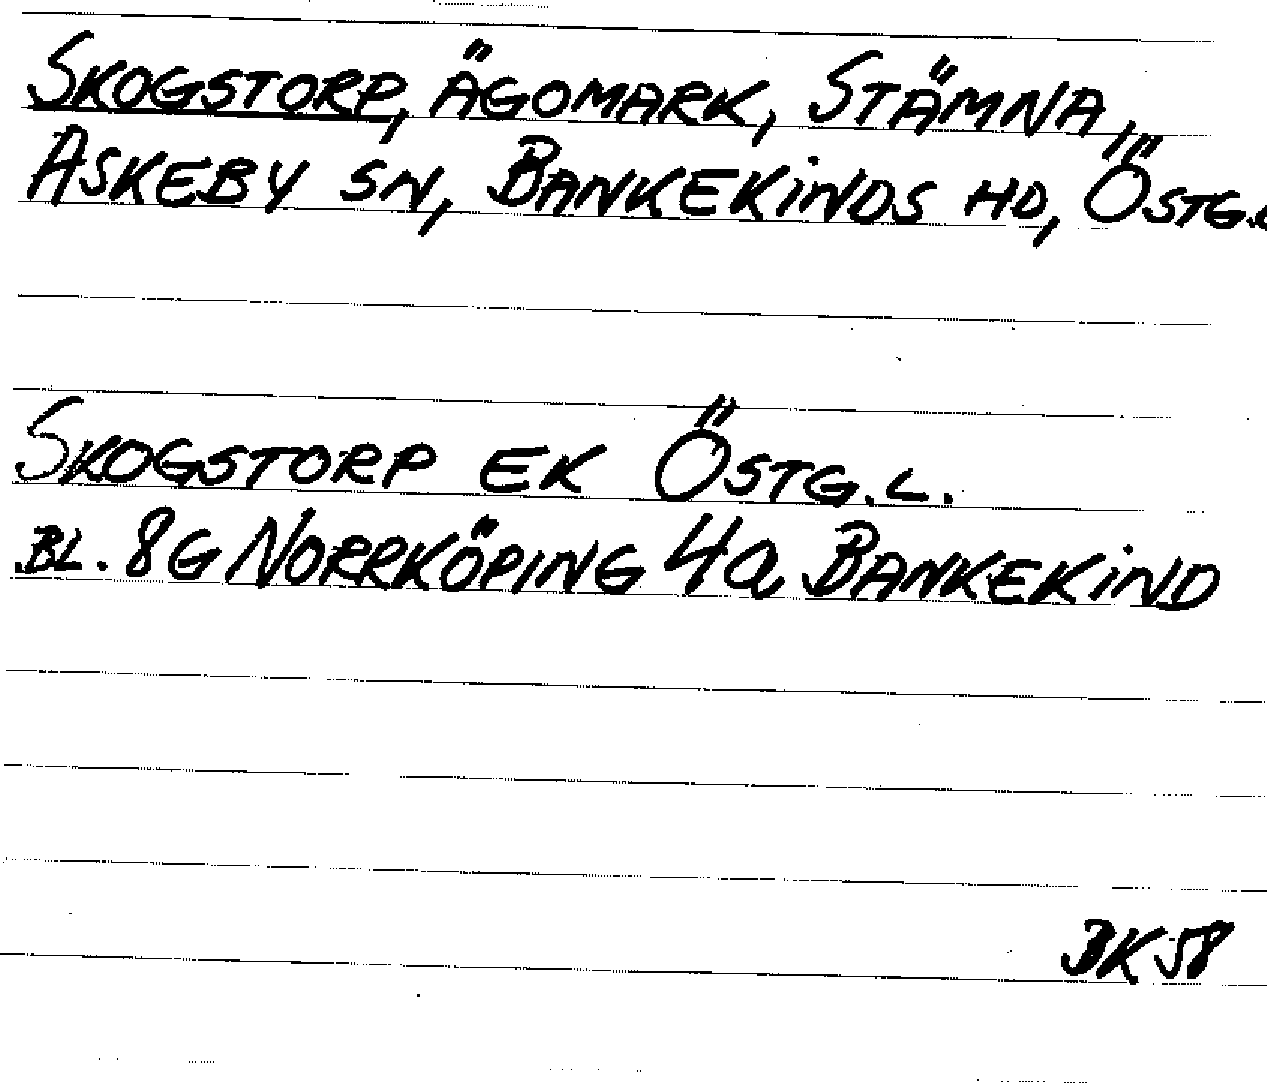 SKOGSTORP, ÄGOMARK, STÄMNA,
ASKEBY SN, BANKEKINDS HD, ÖSTG.L
SKOGSTORP EK ÖSTG.L.
BL. 8G NORRKÖPING 4a BANKEKIND
BK58